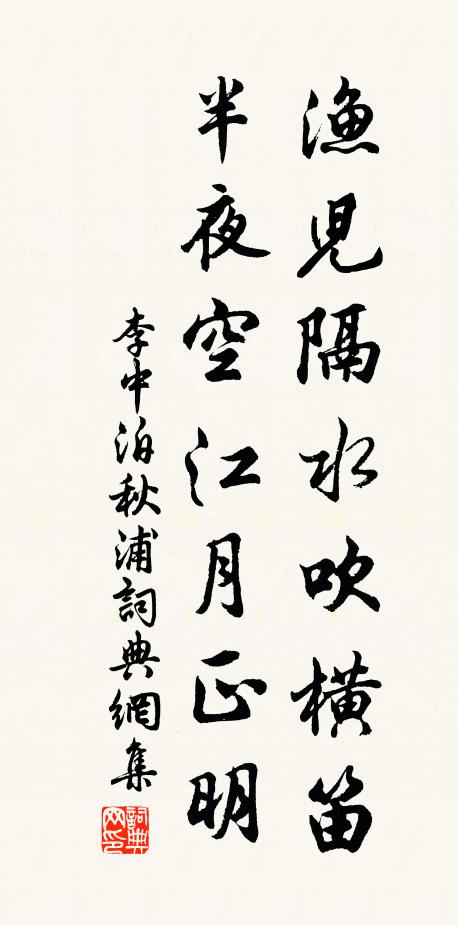 漁児隔水吹橫笛
半夜空江月正明
李中泊秋浦詞典網集
詞典网印